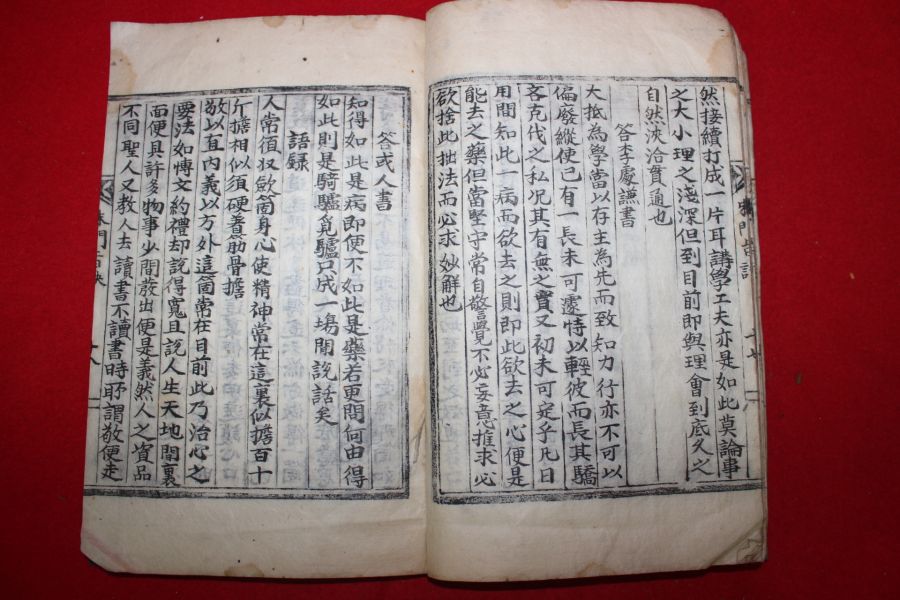 然接續打成一片耳講學工夫亦是如此莫論事
之大小理之淺深但到目前即與理會到底久之
自然浹洽貫通也
答李處謙書
大抵為學當以存主為先而致知力行亦不可以
偏廢縱使已有一長未可遽恃以輕彼而長其驕
吝克伐之私况其有無之實又初未可定乎凡日
用間知此一病而欲去之則即此欲去之心便是
能去之藥但當堅守常自警覺不必妄意推求必
欲捨此拙法而必求妙解也
答或人書
知得如此是病即便不如此是藥若更問何由得
如此則是騎驢覓驢只成一場閒說話矣
語錄
人常須収歛箇身心使精神常在這裏似擔百十
斤擔相似須硬着筋骨擔
敬以直內義以方外這箇常在目前此乃治心之
要法如博文約禮却說得寬且說人生天地間裏
面便具許多物事少間發出便是義然人之資品
不同聖人又教人去讀書不讀書時所謂敬便走
朱門旨訣